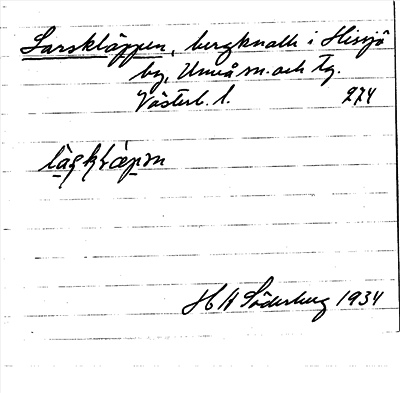 Larskläppen, bergknalle i Hissjö
by, Umeå sn. och tg.
Västerb. l. 274
H A Söderberg 1934